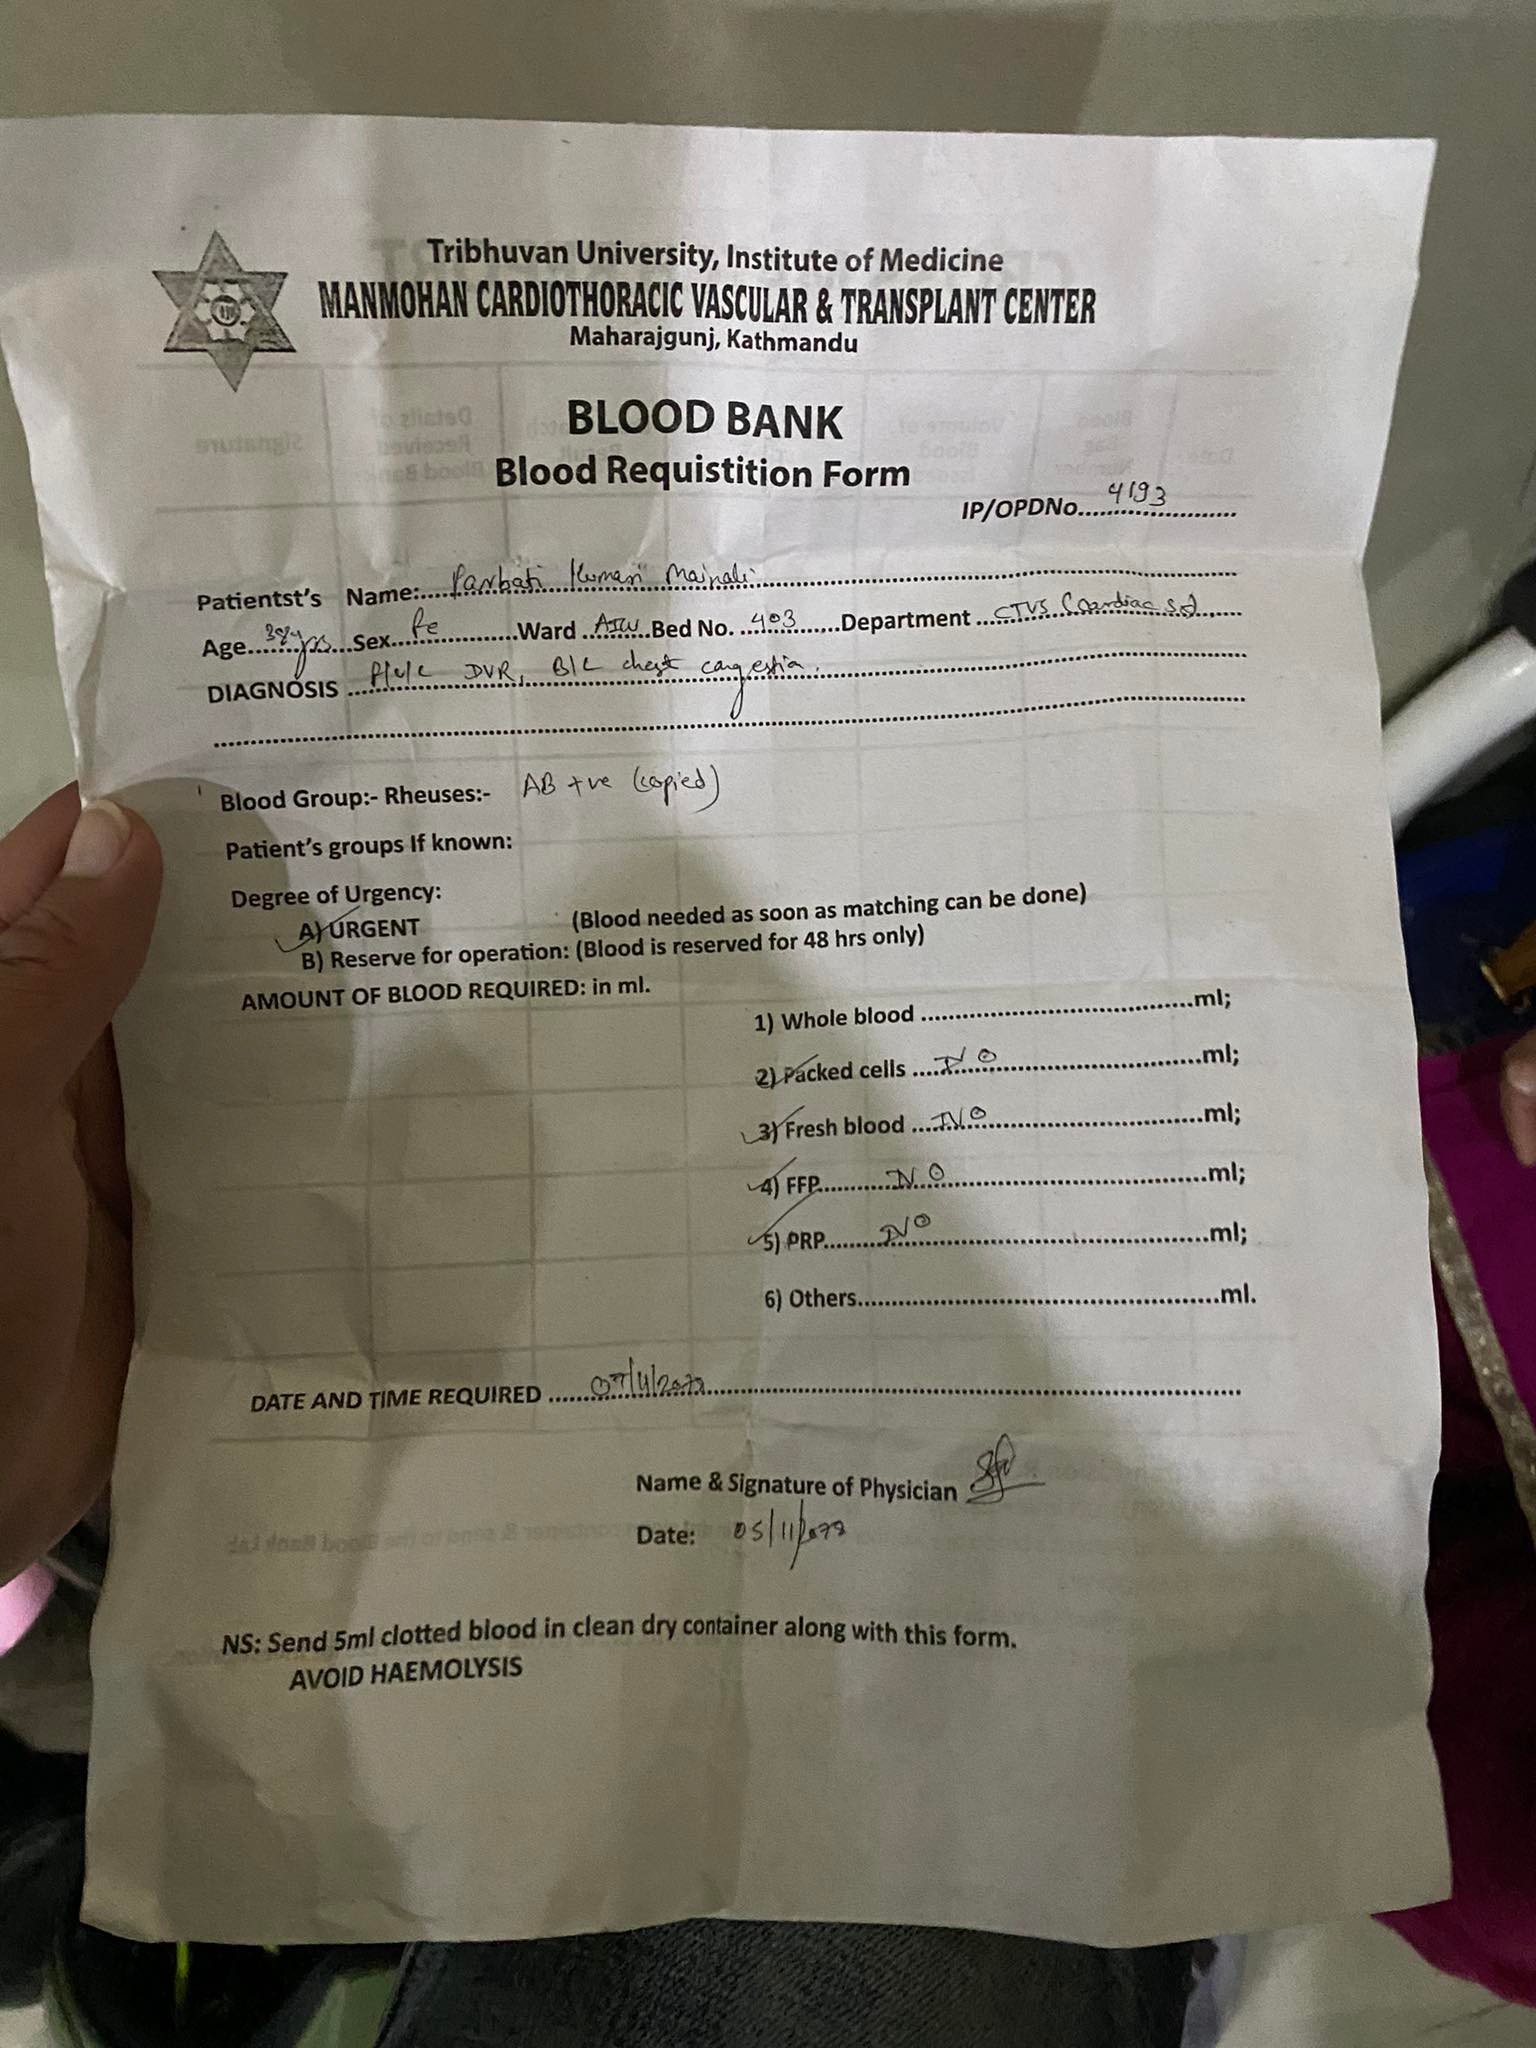 Tribhuvan University, Institute of Medicine
MANMOHAN CARDIOTHORACIC VASCULAR & TRANSPLANT CENTER
Maharajgunj, Kathmandu
BLOOD BANK
Blood Requistition Form
IP/OPDNo. 4193
Patientst's Name: Parbati Kumari Mainali
Age 38yrs Sex Fe Ward Bed No. 403 Department CTVS (Cardiac
DIAGNOSIS DVR, B/L chest congestia.
Blood Group:- Rheuses:- AB +ve (copied)
Patient's groups If known:
Degree of Urgency:
A) URGENT (Blood needed as soon as matching can be done)
B) Reserve for operation: (Blood is reserved for 48 hrs only)
AMOUNT OF BLOOD REQUIRED: in ml.
1) Whole blood ml;
2) Packed cells ml;
3) Fresh blood ml;
4) FFP ml;
5) PRP ml;
6) Others ml.
DATE AND TIME REQUIRED
Name & Signature of Physician
Date: 05/11/2078
NS: Send 5ml clotted blood in clean dry container along with this form.
AVOID HAEMOLYSIS